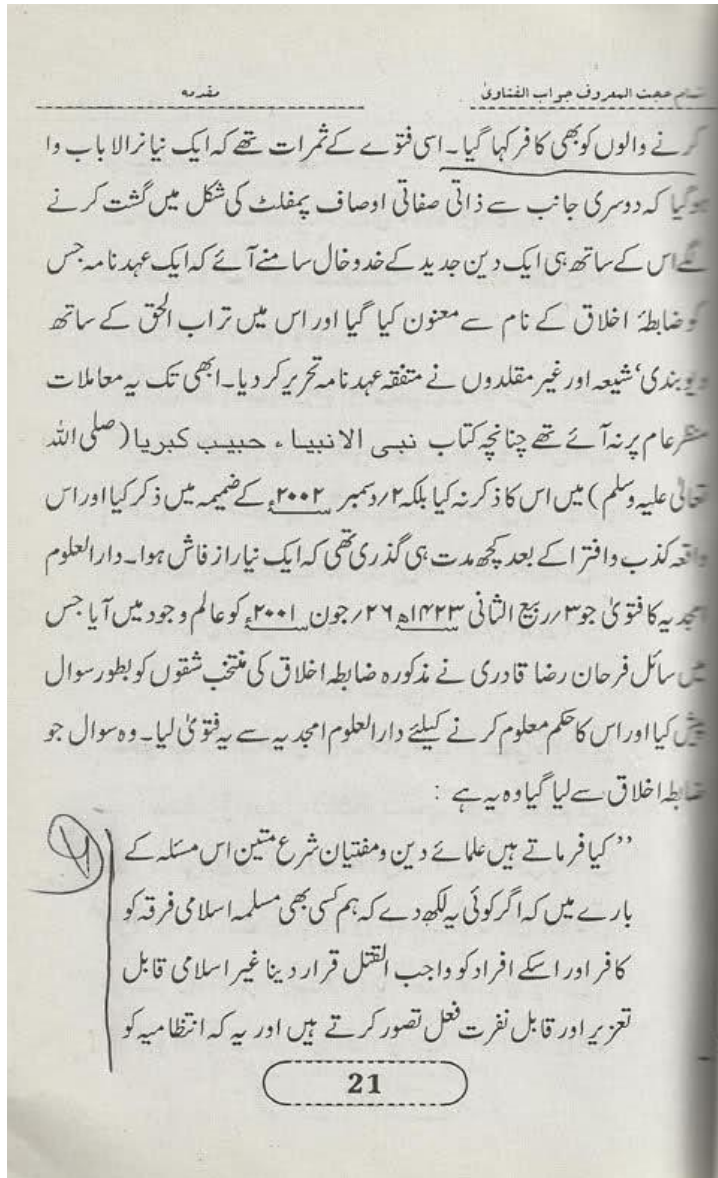 حجت المعروف جواب الفتاویٰ
مقدمہ
کرنے والوں کو بھی کافر کہا گیا۔ اسی فتوے کے ثمرات تھے کہ ایک نیا نرالا باب وا
ہوگیا کہ دوسری جانب سے ذاتی صفاتی اوصاف پمفلٹ کی شکل میں گشت کرنے
لگے اس کے ساتھ ہی ایک دین جدید کے خدوخال سامنے آئے کہ ایک عہد نامہ جس
کو ضابطۂ اخلاق کے نام سے معنون کیا گیا اور اس میں تراب الحق کے ساتھ
دیوبندی‘ شیعہ اور غیر مقلدوں نے متفقہ عہد نامہ تحریر کر دیا۔ ابھی تک یہ معاملات
منظر عام پر نہ آئے تھے چنانچہ کتاب نبی الانبیاء حبیب کبریا (صلی اللہ
تعالیٰ علیہ وسلم) میں اس کا ذکر نہ کیا بلکہ ۲/دسمبر ۲۰۰۲ء کے ضمیمہ میں ذکر کیا اور اس
واقعہ کذب و افترا کے بعد کچھ مدت ہی گذری تھی کہ ایک نیا راز فاش ہوا۔ دارالعلوم
امجدیہ کا فتویٰ جو ۳/ربیع الثانی ۱۴۲۳ھ ۲۶/جون ۲۰۰۱ء کو عالم وجود میں آیا جس
میں سائل فرحان رضا قادری نے مذکورہ ضابطہ اخلاق کی منتخب شقوں کو بطور سوال
پیش کیا اور اس کا حکم معلوم کرنے کیلئے دارالعلوم امجدیہ سے یہ فتویٰ لیا۔ وہ سوال جو
ضابطہ اخلاق سے لیا گیا وہ یہ ہے :
’’کیا فرماتے ہیں علمائے دین و مفتیان شرع متین اس مسئلہ کے
بارے میں کہ اگر کوئی یہ لکھ دے کہ ہم کسی بھی مسلمہ اسلامی فرقہ کو
کافر اور اسکے افراد کو واجب القتل قرار دینا غیر اسلامی قابل
تعزیر اور قابل نفرت فعل تصور کرتے ہیں اور یہ کہ انتظامیہ کو
21